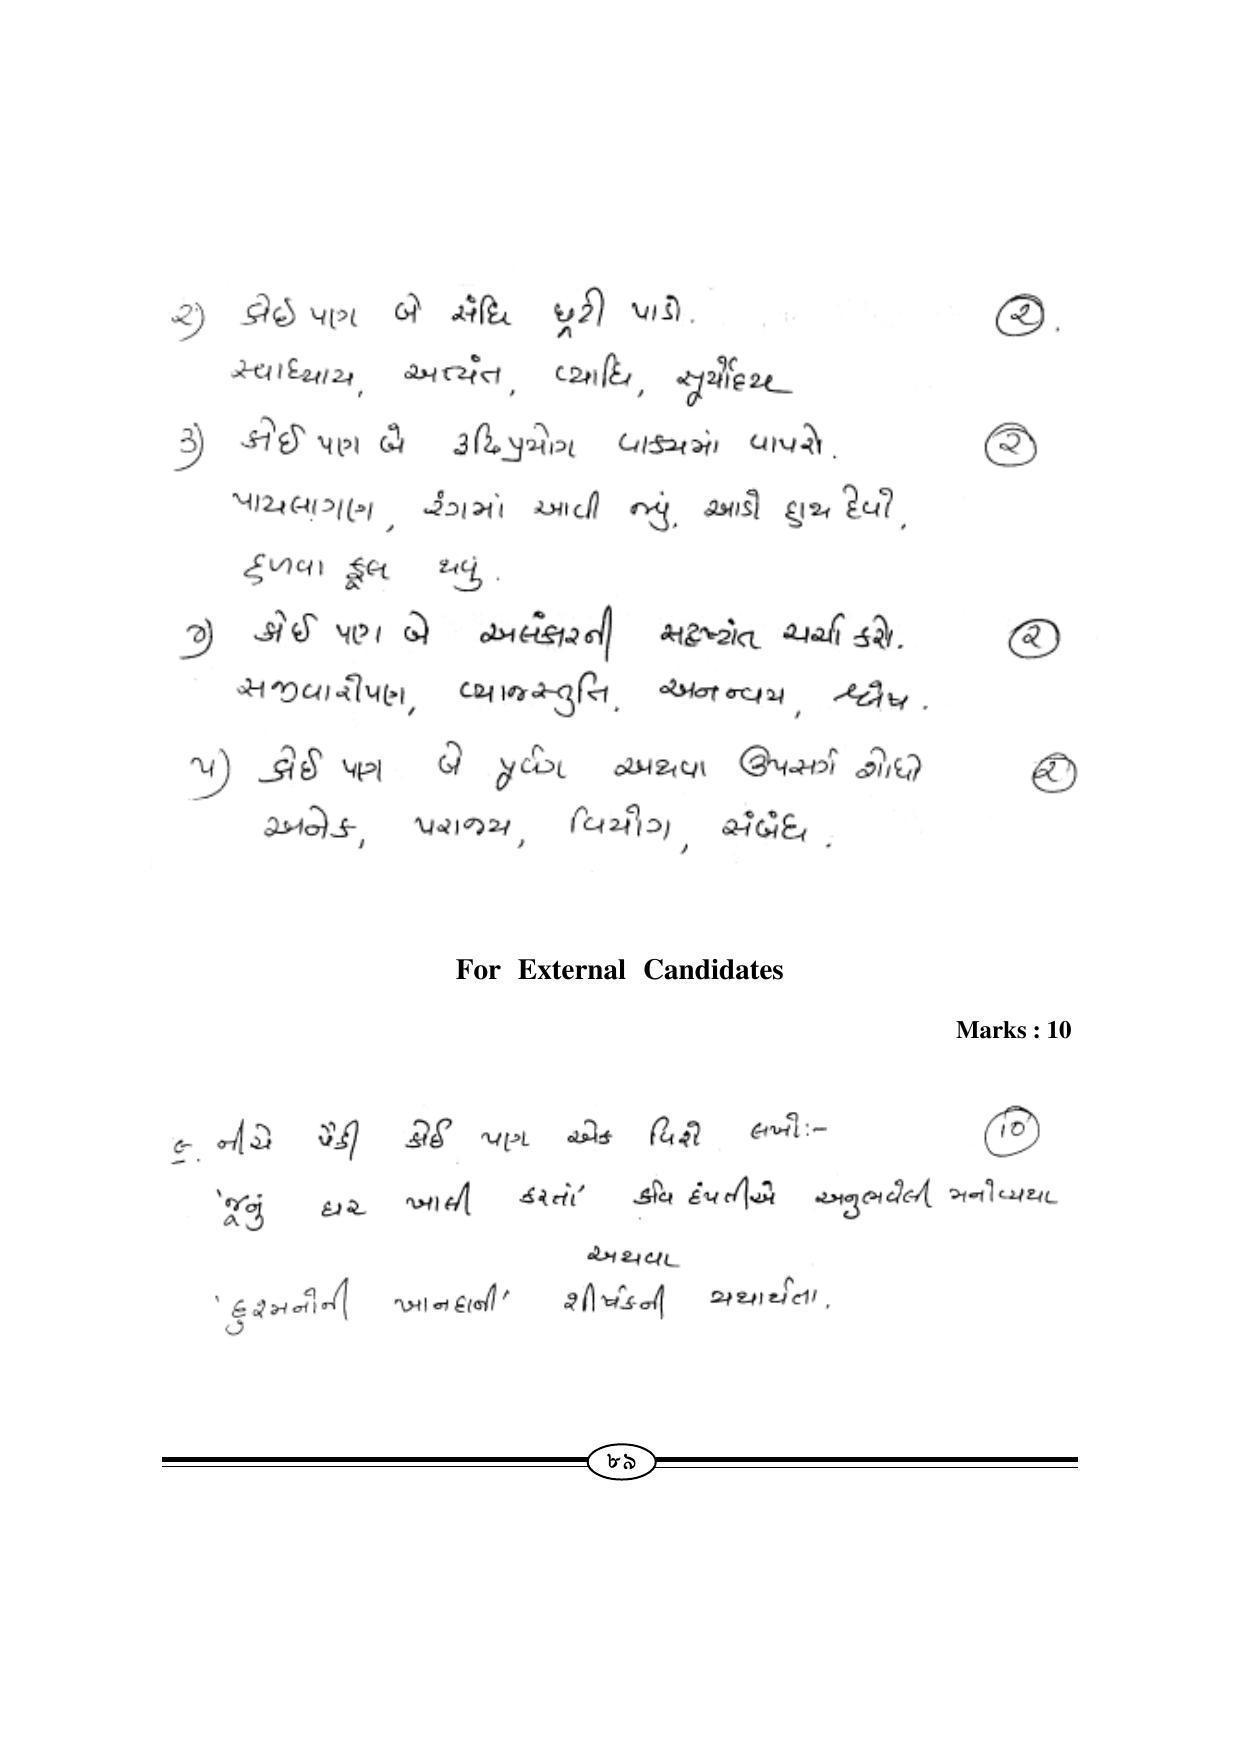 ૨) કોઈ પણ બે સંધિ છૂટી પાડો. ૨.
સ્વાધ્યાય, અત્યંત, વ્યાધિ, સૂર્યોદય
૩) કોઈ પણ બે રૂઢિપ્રયોગ વાક્યમાં વાપરો. ૨
પાયલાગણ, રંગમાં આવી જવું, આડો હાથ દેવો,
હળવા ફૂલ થવું.
૪) કોઈ પણ બે અલંકારની સદ્રષ્ટાંત ચર્ચા કરો. ૨
સજીવારોપણ, વ્યાજસ્તુતિ, અનન્વય, શ્લેષ.
૫) કોઈ પણ બે પૂર્વગ અથવા ઉપસર્ગ શોધો ૨
અનેક, પરાજય, વિયોગ, સંબંધ.
For External Candidates
Marks : 10
૬. નીચે પૈકી કોઈ પણ એક વિશે લખો:- ૧૦
'જૂનું ઘર ખાલી કરતાં' કવિ દંપતીએ અનુભવેલી મનોવ્યથા
અથવા
'દુશ્મનોની ખાનદાની' શીર્ષકની યથાર્થતા.
૮૯